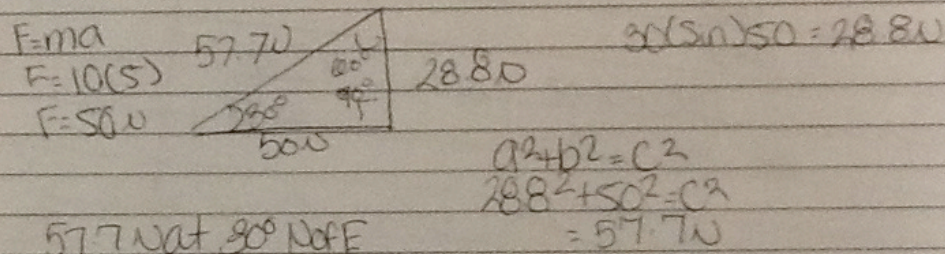 F=ma
F=10(5)
F=50N
57.7N
28.8N
30°
50N
30(Sin)50=28.8N
a²+b²=c²
28.8²+50²=c²
=57.7N
57.7N at 30° N of E